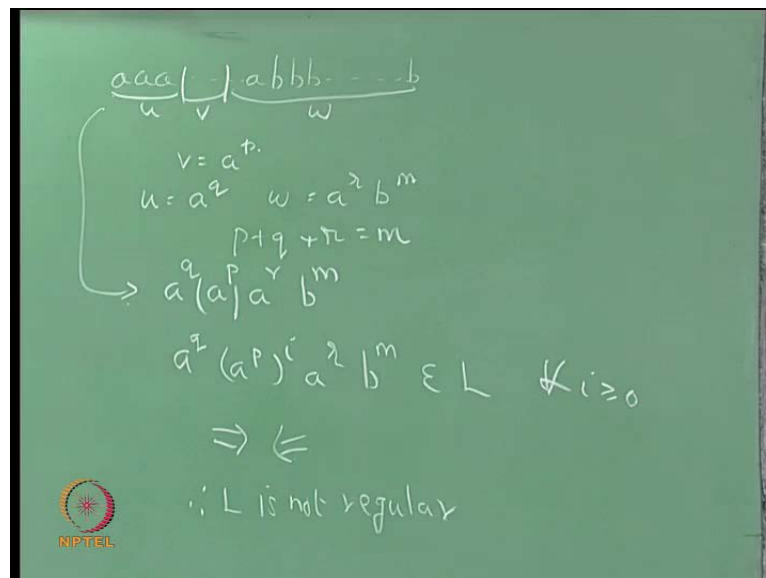 aaa|...|.abbb.....b
u v w
v = a^p.
u = a^q w = a^r b^m
p+q+r=m
→ a^q (a^p) a^r b^m
a^q (a^p)^i a^r b^m ∈ L ∀ i≥0
⇒ ⇐
∴ L is not regular
NPTEL